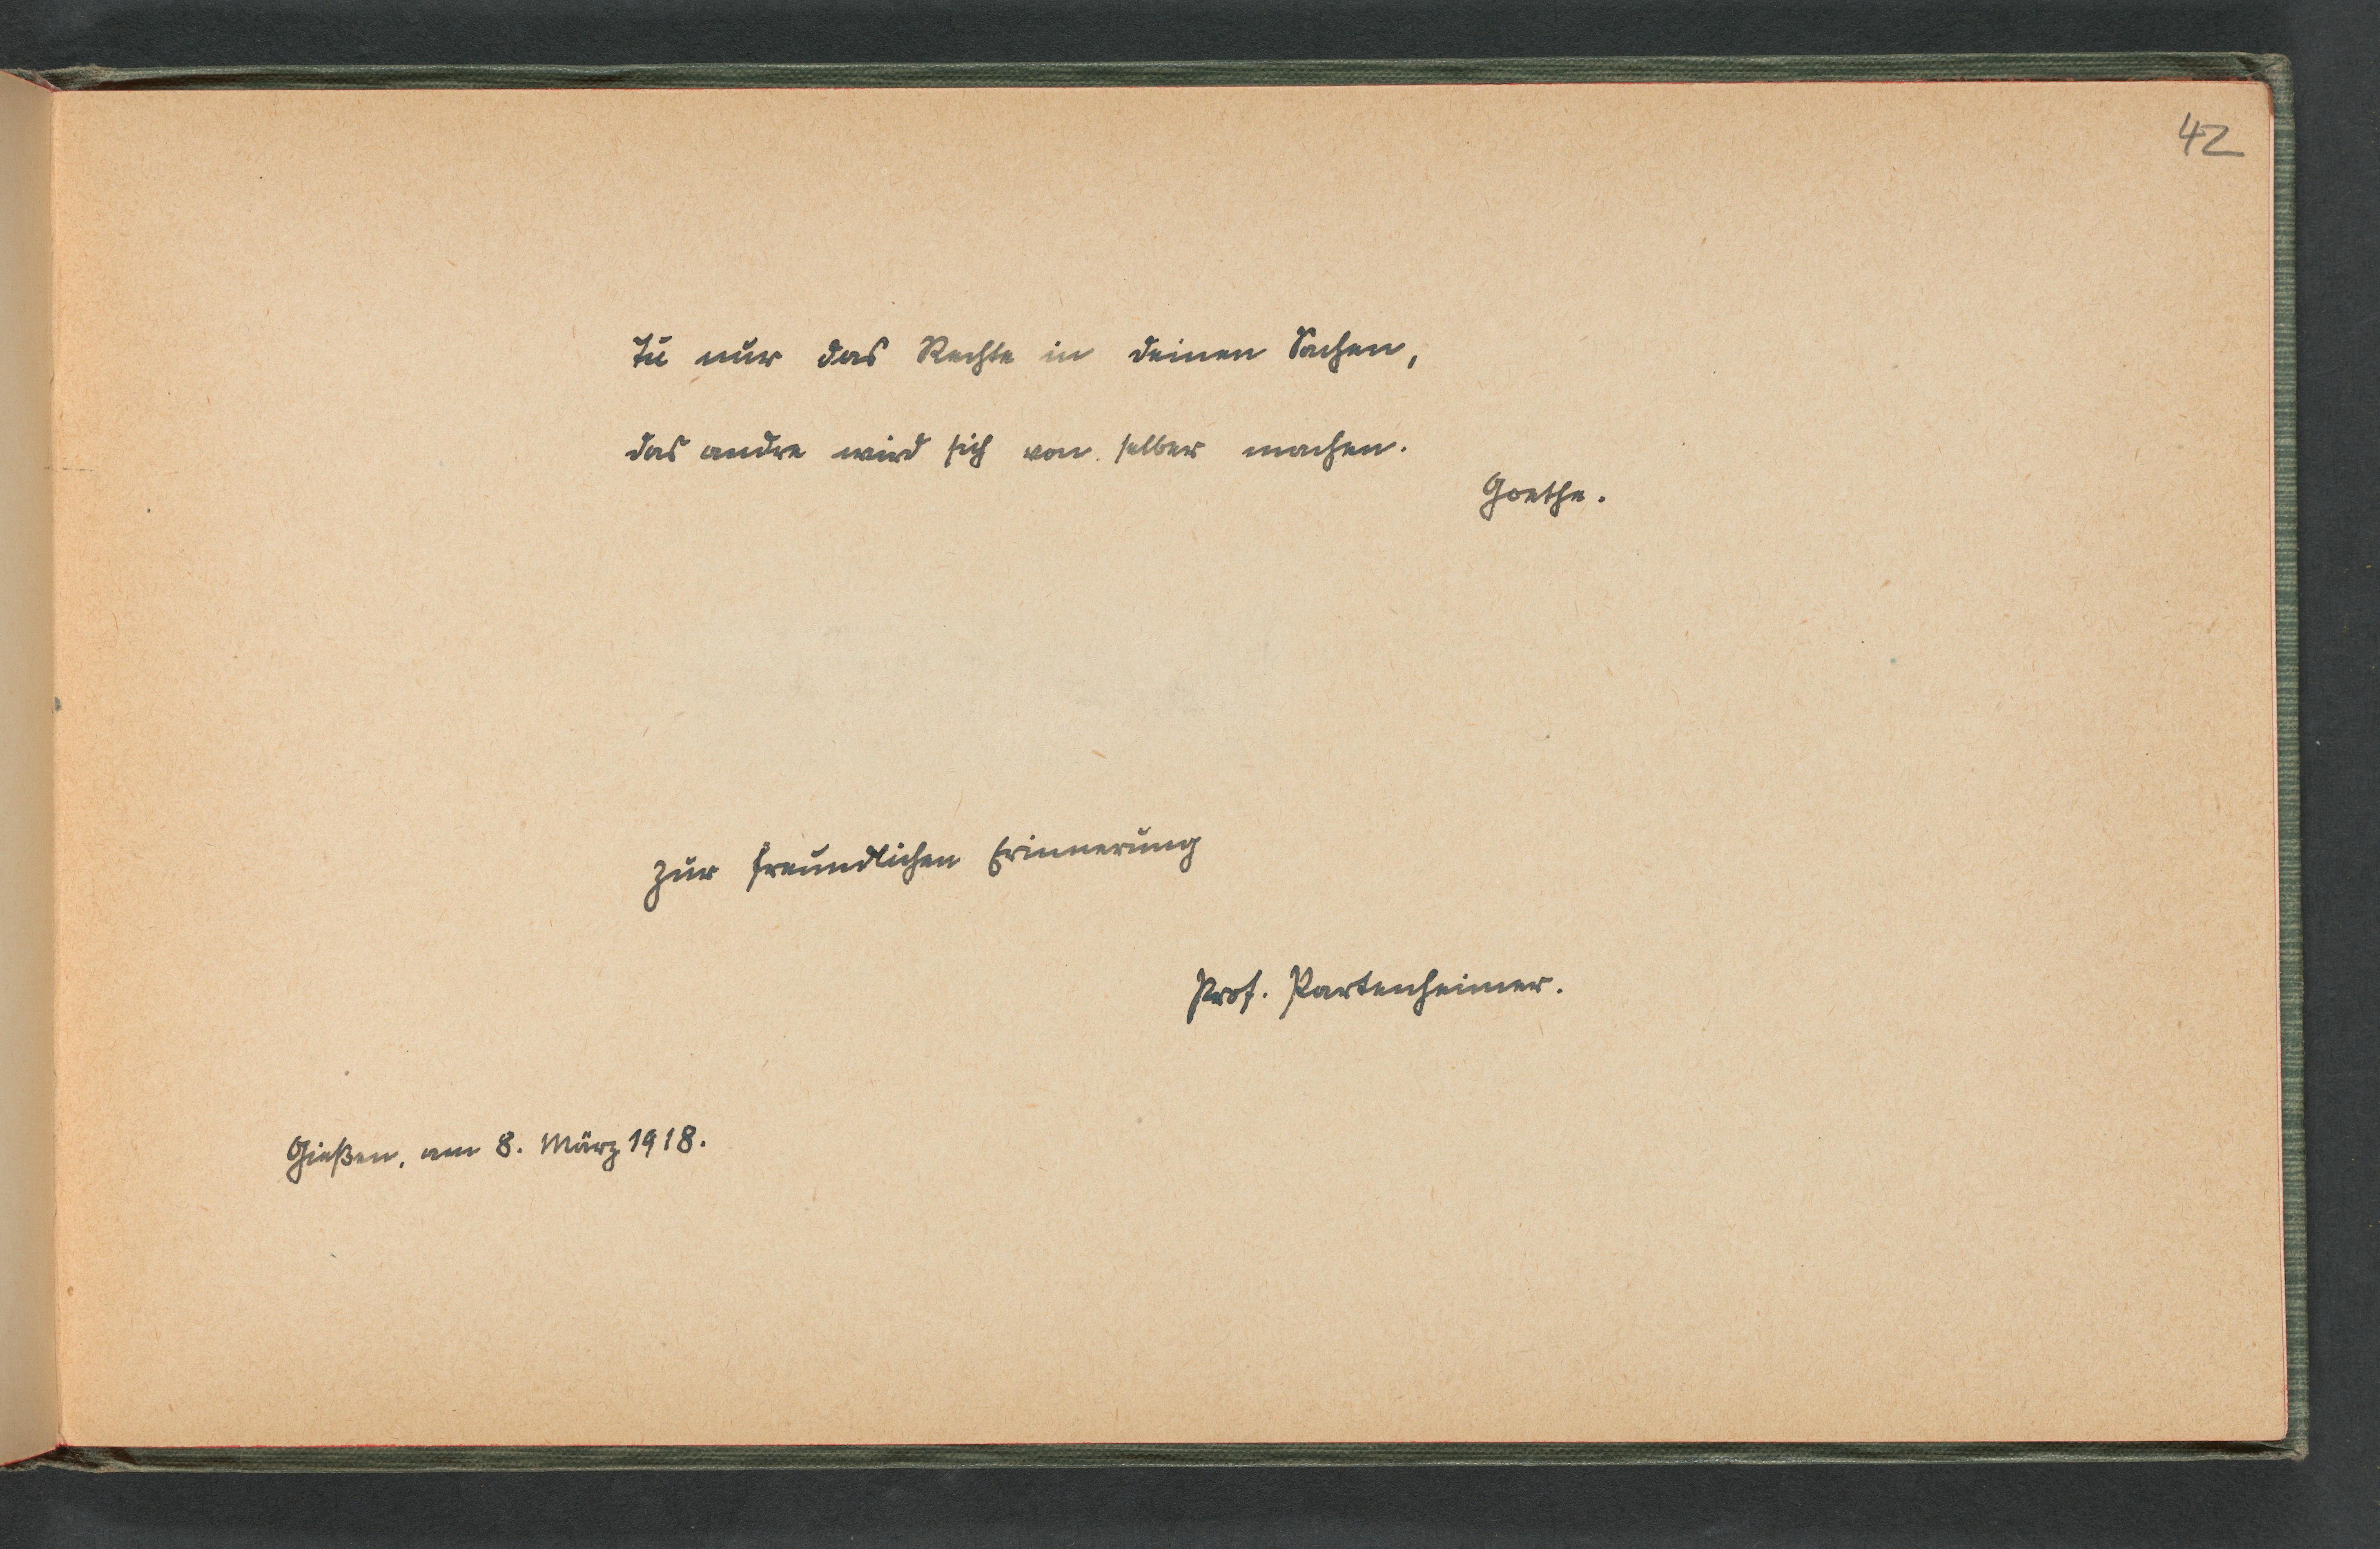 42
Tu nur das Rechte in deinen Sachen,
das andre wird sich von selber machen.
Goethe.
Zur freundlichen Erinnerung
Prof. Partenheimer.
Gießen, am 8. März 1918.